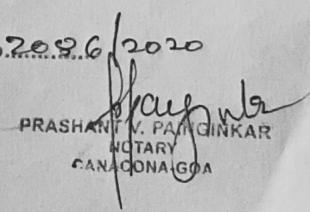 2086/2020
PRASHANT V. PAINGINKAR
NOTARY
CANACONA-GOA